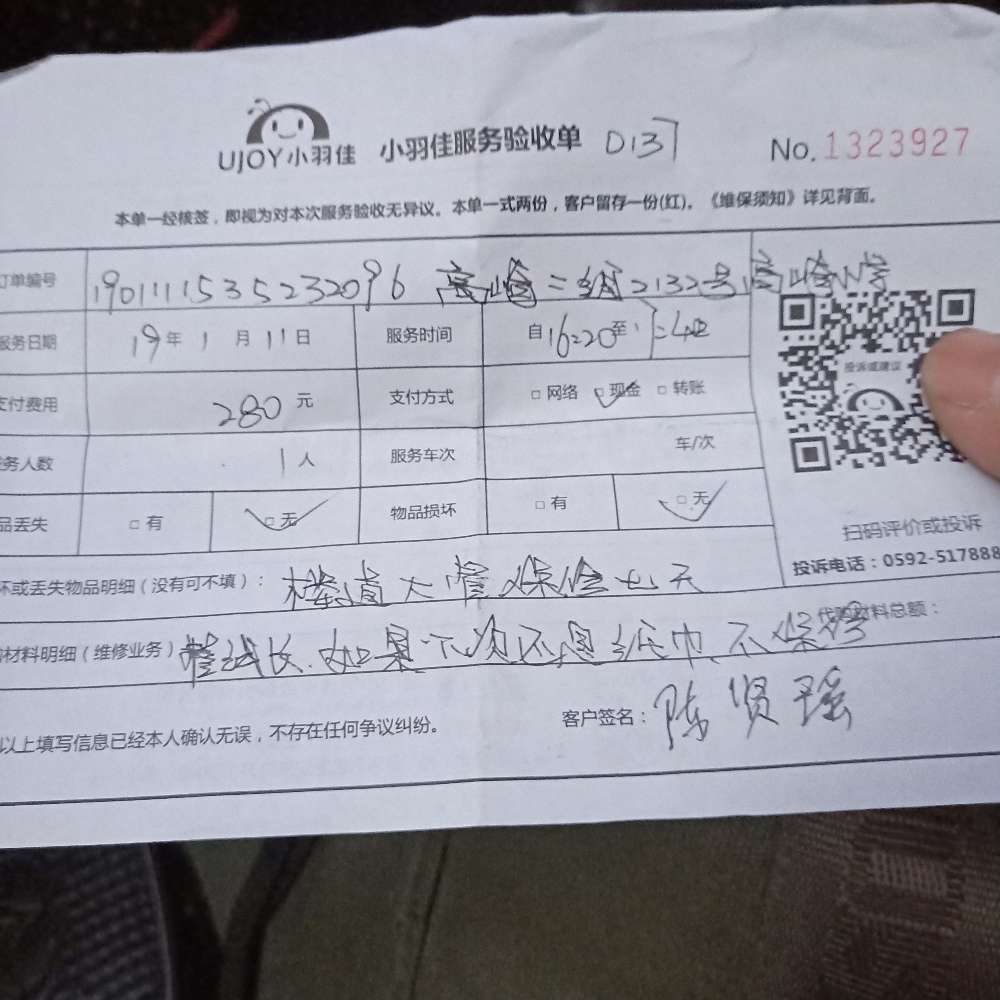 UJOY小羽佳 小羽佳服务验收单 D137 No.1323927
本单一经核签，即视为对本次服务验收无异议。本单一式两份，客户留存一份(红)。《维保须知》详见背面。
订单编号 1901111535232096 高崎二组2132号高崎小学
服务日期 19年1月11日 服务时间 自16:20至
支付费用 280元 支付方式 □网络 □现金 □转账
投诉或建议
服务人数 1人 服务车次 车/次
品丢失 □有 □无 物品损坏 □有 □无
扫码评价或投诉
投诉电话：0592-517888
坏或丢失物品明细（没有可不填）： 楼道大管保修七天
材料明细（维修业务） 管线长.如果下次还是纸巾不保修 代购材料总额：
以上填写信息已经本人确认无误，不存在任何争议纠纷。 客户签名： 陈贤瑶